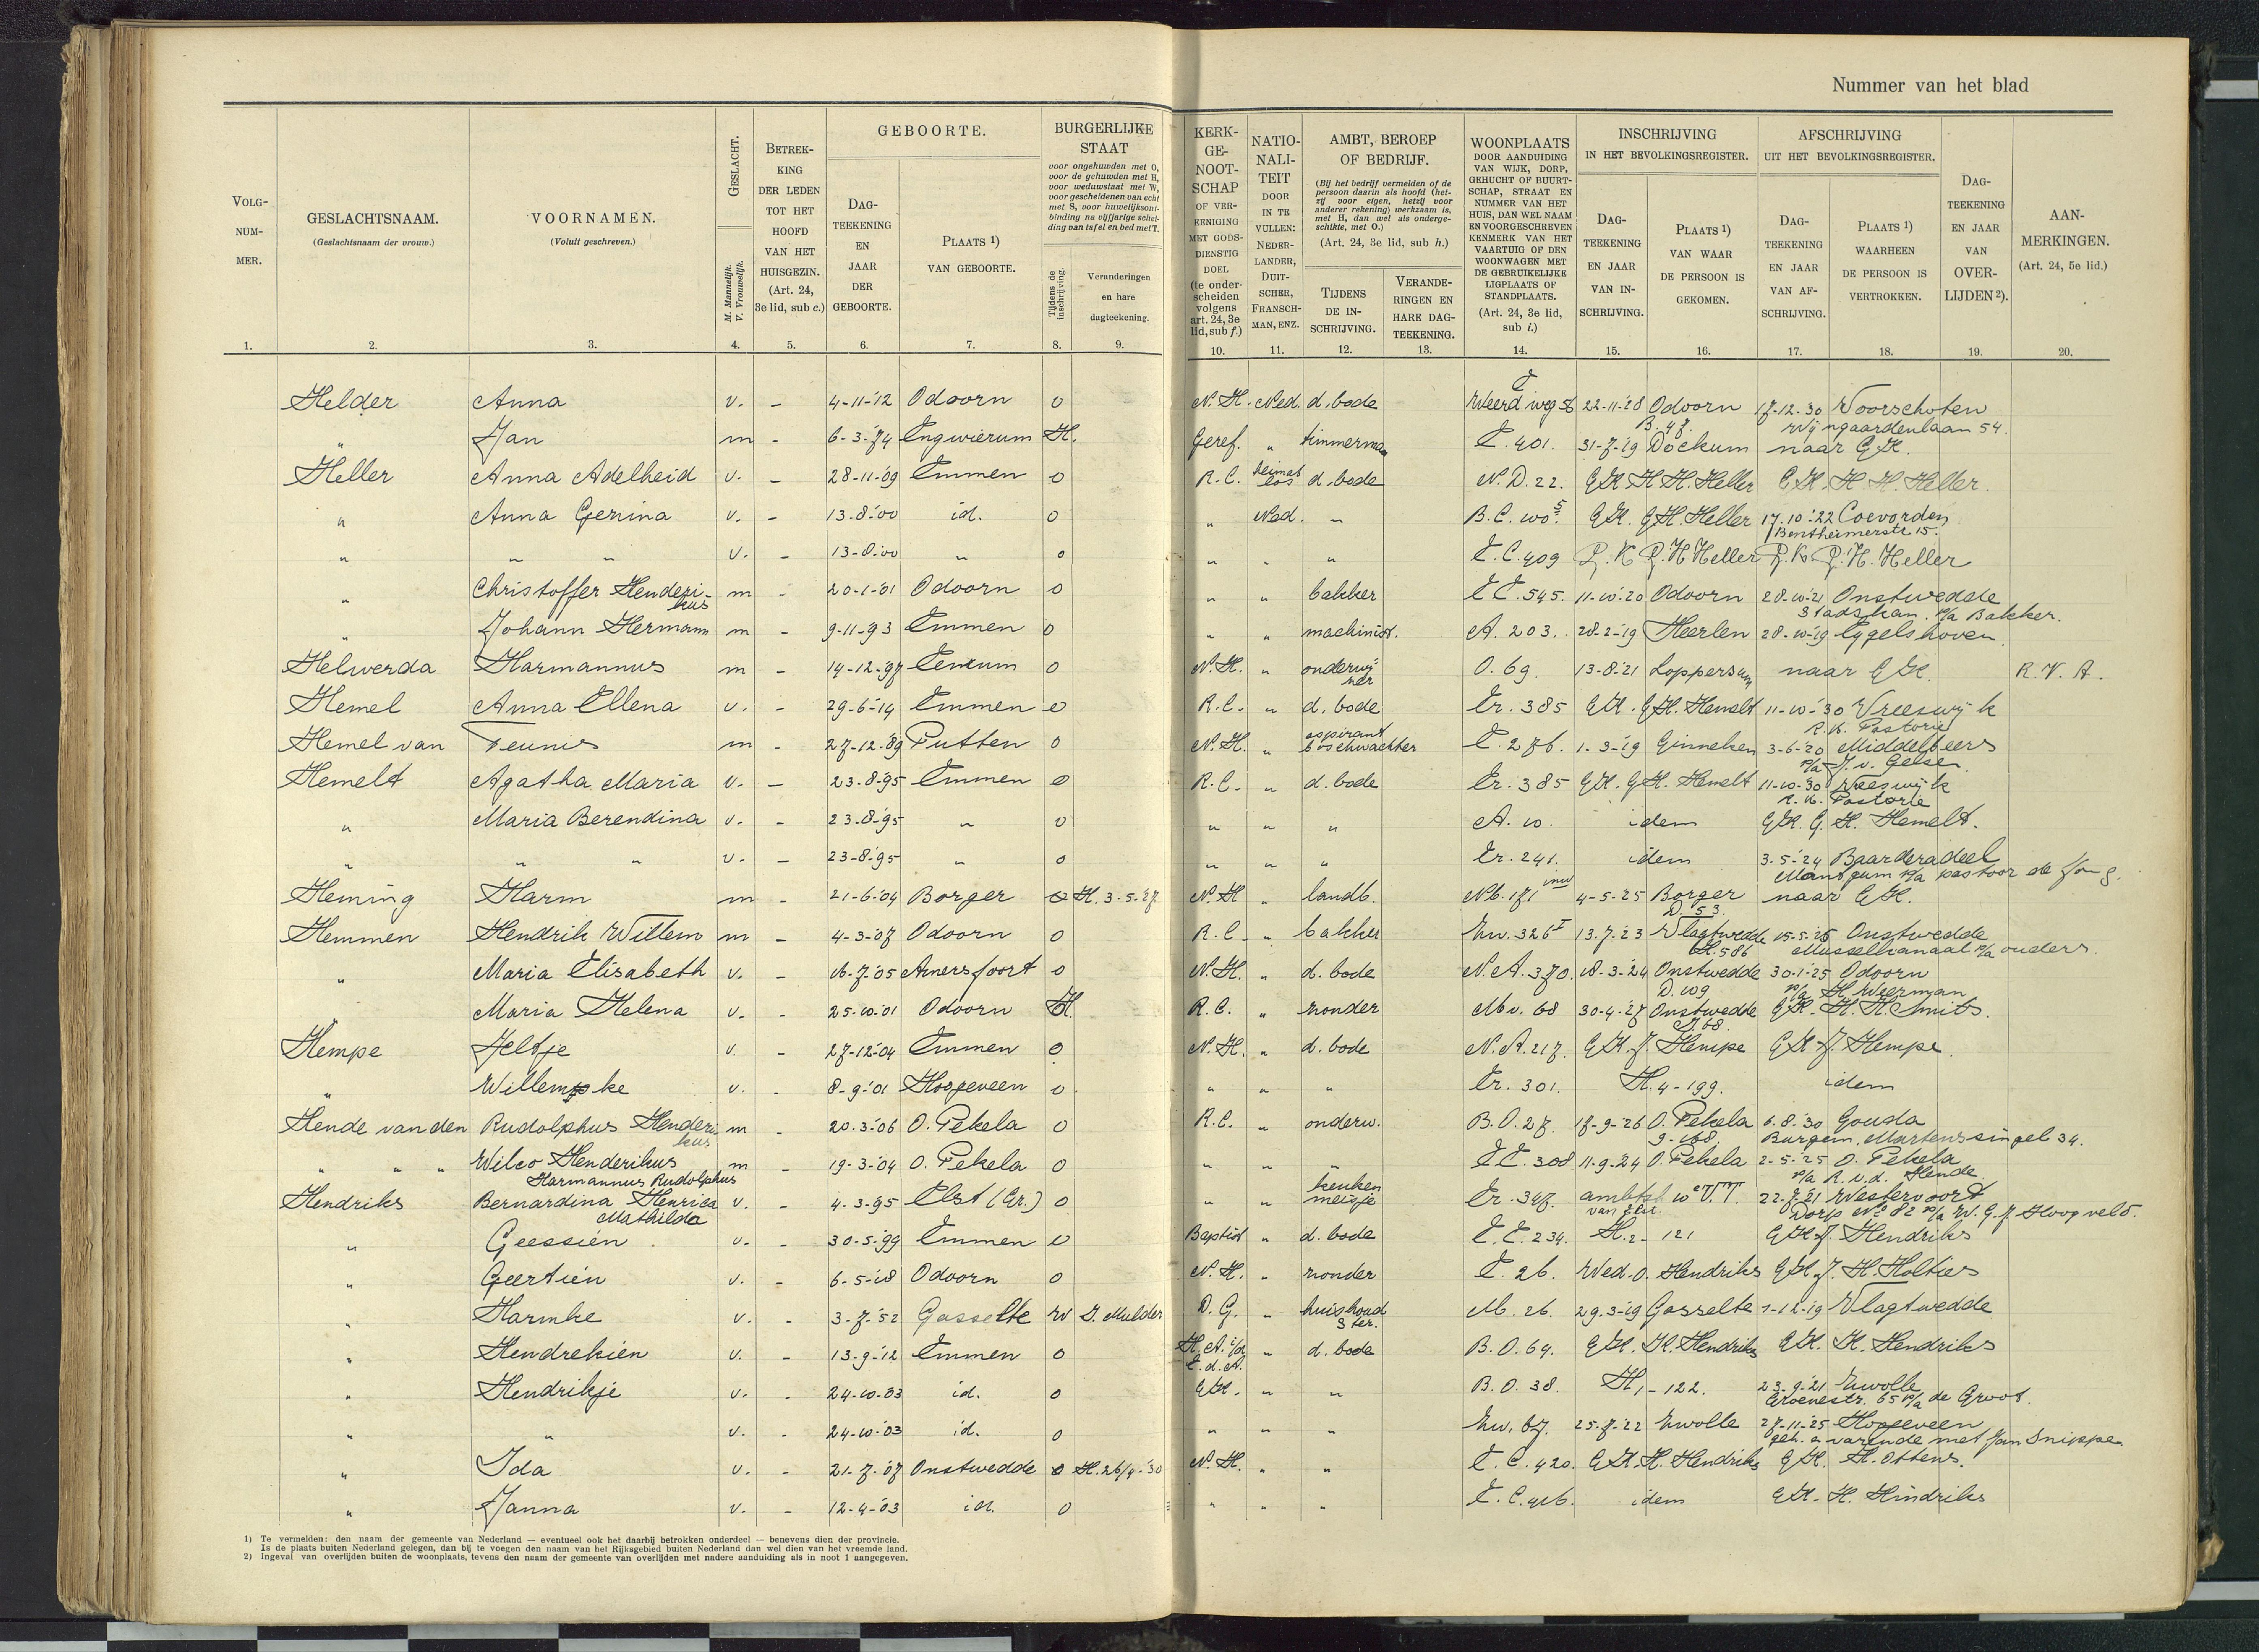 Nummer van het blad
VOLG-NUM-MER. GESLACHTSNAAM. (Geslachtsnaam der vrouw.) VOORNAMEN. (Voluit geschreven.) GESLACHT. M. Mannelijk. V. Vrouwelijk. BETREKKING DER LEDEN TOT HET HOOFD VAN HET HUISGEZIN. (Art. 24, 3e lid, sub c.)
GEBOORTE. DAGTEEKENING EN JAAR DER GEBOORTE. PLAATS 1) VAN GEBOORTE.
BURGERLIJKE STAAT voor ongehuwden met O, voor de gehuwden met H, voor weduwstaat met W, voor gescheidenen van echt met S, voor huwelijksontbinding na vijfjarige scheiding van tafel en bed met T. Tijdens de inschrijving. Veranderingen en hare dagteekening.
KERKGENOOTSCHAP OF VEREENIGING MET GODSDIENSTIG DOEL (te onderscheiden volgens art. 24, 3e lid, sub f.)
NATIONALITEIT DOOR IN TE VULLEN: NEDERLANDER, DUITSCHER, FRANSCHMAN, ENZ.
AMBT, BEROEP OF BEDRIJF. (Bij het bedrijf vermelden of de persoon daarin als hoofd (hetzij voor eigen, hetzij voor anderer rekening) werkzaam is, met H, dan wel als ondergeschikte, met O.) (Art. 24, 3e lid, sub h.) TIJDENS DE INSCHRIJVING. VERANDERINGEN EN HARE DAGTEEKENING.
WOONPLAATS DOOR AANDUIDING VAN WIJK, DORP, GEHUCHT OF BUURTSCHAP, STRAAT EN NUMMER VAN HET HUIS, DAN WEL NAAM EN VOORGESCHREVEN KENMERK VAN HET VAARTUIG OF DEN WOONWAGEN MET DE GEBRUIKELIJKE LIGPLAATS OF STANDPLAATS. (Art. 24, 3e lid, sub i.)
INSCHRIJVING IN HET BEVOLKINGSREGISTER. DAGTEEKENING EN JAAR VAN INSCHRIJVING. PLAATS 1) VAN WAAR DE PERSOON IS GEKOMEN.
AFSCHRIJVING UIT HET BEVOLKINGSREGISTER. DAGTEEKENING EN JAAR VAN AFSCHRIJVING. PLAATS 1) WAARHEEN DE PERSOON IS VERTROKKEN.
DAGTEEKENING EN JAAR VAN OVERLIJDEN 2). AANMERKINGEN. (Art. 24, 5e lid.)
1. 2. 3. 4. 5. 6. 7. 8. 9. 10. 11. 12. 13. 14. 15. 16. 17. 18. 19. 20.
Helder Anna v. - 4-11-'12 Odoorn o N.H. Ned. d. bode Weerd. weg 56 22-11-'28 Odoorn B.47. 17-12-30 Voorschoten Wijngaardenlaan 54.
" Jan m - 6-3-'74 Engwierum H. Geref. " timmerman E. 401. 31-7-'19 Dockum naar G.K.
Heller Anna Adelheid v. - 28-11-'09 Emmen o R.C. heimatlos d. bode N.D. 22. G.K. H.H. Heller G.K. H.H. Heller.
" Anna Gerina v. - 13-8-'00 id. o " Ned. " B.C. 100 5. G.K. G.H. Heller 17.10-'22 Coevorden Bentheimerstr 15.
" " " v. - 13-8-'00 " o " " " E.C. 409 G.K. G.H. Heller G.K. G.H. Heller
" Christoffer Henderikus m - 20-1-'01 Odoorn o " " bakker E.E. 545. 11-10-'20 Odoorn 28-10-'21 Onstwedde Stadskan. p/a Bakker.
" Johann Hermann m - 9-11-'93 Emmen o " " machinist. A. 203. 28-2-'19 Heerlen 28-10-'19 Eygelshoven
Helwerda Harmannus m - 14-12-'97 Eenum o N.H. " onderwijzer O. 69. 13-8-'21 Loppersum naar G.K. R.V.A.
Hemel Anna Ellena v. - 29-6-'14 Emmen o R.C. " d. bode Er. 385 G.K. G.H. Hemelt 11-10-'30 Vreeswijk R.K. Pastorie
Hemel van Teunis m - 27-12-'89 Putten o N.H. " aspirant boschwachter E. 276. 1-3-'19 Ginneken 3-6-'20 Middelbeers p/a J. v. Gelsen.
Hemelt Agatha Maria v. - 23-8-'95 Emmen o R.C. " d. bode Er. 385 G.K. G.H. Hemelt 11-10-30 Vreeswijk R.K. Pastorie
" Maria Berendina v. - 23-8-'95 " o " " " A. 10. idem G.K. G.H. Hemelt.
" " " v. - 23-8-'95 " o " " " Er. 241. idem 3-5-'24 Baarderadeel Mantgum p/a pastoor de Jong.
Heming Harm m - 21-6-'04 Borger o H. 3-5-'27 N.H " landb. Nb. 171 inw 4-5-'25 Borger D. 53. naar G.K.
Hemmen Hendrik Willem m - 4-3-'07 Odoorn o R.C. " bakker Zw. 326 I 13.7.'23 Vlagtwedde H.586 15-5-'25 Onstwedde Mussellkanaal p/a ouders.
" Maria Elisabeth v. - 16-7-'05 Amersfoort o N.H. " d. bode N.A. 370. 18-3-'24 Onstwedde D. 109 30-1-'25 Odoorn p/a H. Weerman
" Maria Helena v. - 25-10-'01 Odoorn H. R.C. " zonder Mv. 68 30-4-'27 Onstwedde G.K. H.H. Smits.
Hempe Jeltje v. - 27-12-'04 Emmen o N.H. " d. bode N.A. 217. G.K. J. Hempe G.K. J. Hempe.
" Willempke v. - 8-9-'01 Hoogeveen o " " " Er. 301. H. 4-199. idem
Hende van den Rudolphus Henderikus m - 20-3-'06 O. Pekela o R.C. " onderw. B.O. 27. 17-9-'26 O. Pekela 6.8.'30 Gouda Burgem. Martenssingel 34.
" " " Wilco Henderikus Harmannus Rudolphus m - 19-3-'04 O. Pekela o " " " E.E. 308 11-9-'24 O. Pekela 2-5-'25 O. Pekela p/a R.v.d. Hende
Hendriks Bernardina Henrica Mathilda v. - 4-3-'95 Elst (Gr.) o " " keukenmeisje Er. 347. 22-7-'21 Westervoort Dorp No 82 p/a W.G.J. Hoogveld.
" Geessien v. - 30-5-'99 Emmen o Baptist " d. bode E.E. 234. H. 2-121 G.K. J. Hendriks
" Geertien v. - 6-5-'18 Odoorn o N.H. " zonder E. 26. Wed. O. Hendriks G.K. J.H. Holties
" Harmke v. - 3-7-'52 Gasselte W J. Mulder D.G. " huishoudster. M. 26. 29.3-'19 Gasselte 1-12-'19 Vlagtwedde
" Hendrekien v. - 13-9-'12 Emmen o " d. bode B.O. 64. G.K. K. Hendriks G.K. K. Hendriks
" Hendrikje v. - 24-10-03 id. o G.K. " " B.O. 38. H1-122. 23-9-'21 Zwolle Groenestr. 65 p/a de Groot.
" " v. - 24-10-'03 id. o " " " Zw. 67. 25-7-'22 Zwolle 27-11-'25 Hoogeveen geh. a varende met Jan Snippe
" Ida v. - 21-7-'07 Onstwedde o H. 26/4-'30 N.H. " " E.C. 420. G.K. H. Hendriks G.K. H. Ottens.
" Janna v. - 12-4-'03 id. o " " " E.C. 416. idem G.K. H. Hindriks
1) Te vermelden: den naam der gemeente van Nederland — eventueel ook het daarbij betrokken onderdeel — benevens dien der provincie.
Is de plaats buiten Nederland gelegen, dan bij te voegen den naam van het Rijksgebied buiten Nederland dan wel dien van het vreemde land.
2) Ingeval van overlijden buiten de woonplaats, tevens den naam der gemeente van overlijden met nadere aanduiding als in noot 1 aangegeven.